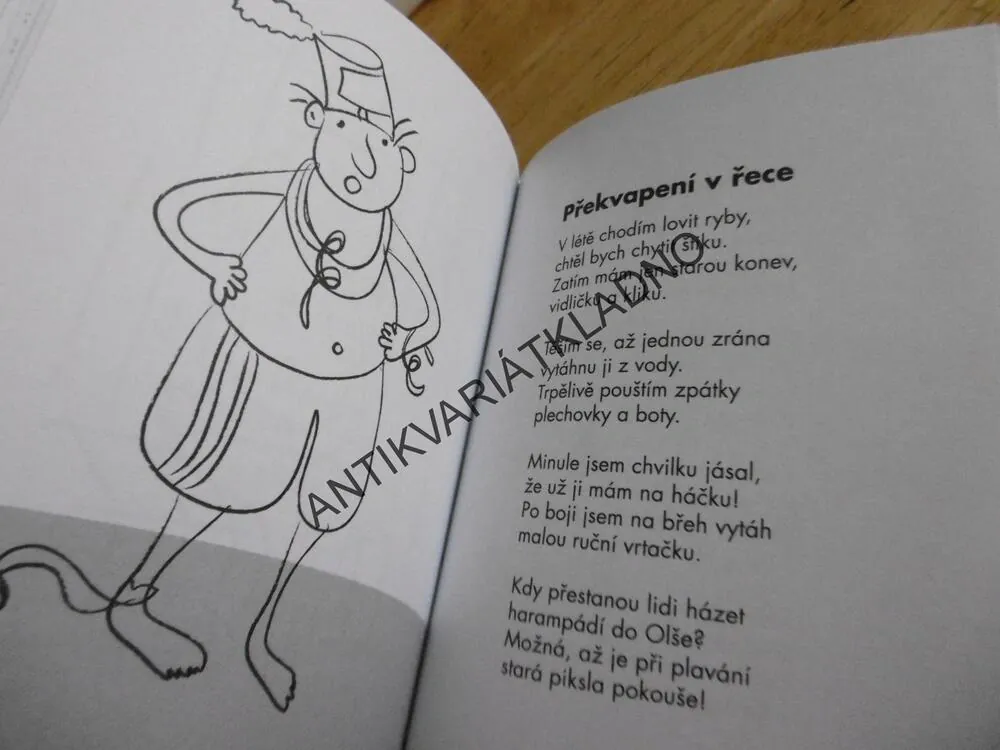 Překvapení v řece
V létě chodím lovit ryby,
chtěl bych chytit štiku.
Zatím mám jen starou konev,
vidličku a kliku.
Těším se, až jednou zrána
vytáhnu ji z vody.
Trpělivě pouštím zpátky
plechovky a boty.
Minule jsem chvilku jásal,
že už ji mám na háčku!
Po boji jsem na břeh vytáh
malou ruční vrtačku.
Kdy přestanou lidi házet
harampádí do Olše?
Možná, až je při plavání
stará piksla pokouše!
ANTIKVARIÁTKLADNO